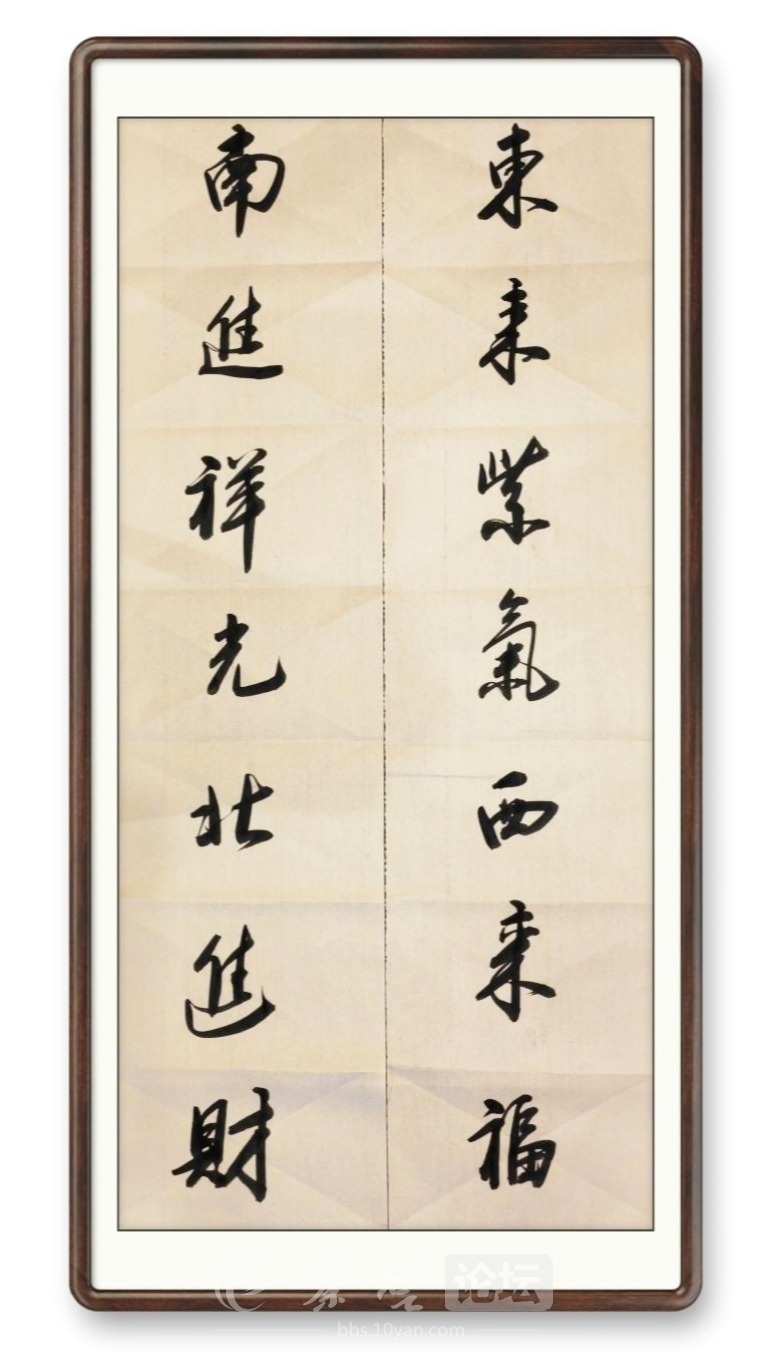 東来紫氣西来福
南進祥光北進財
论坛
bbs.10yan.com